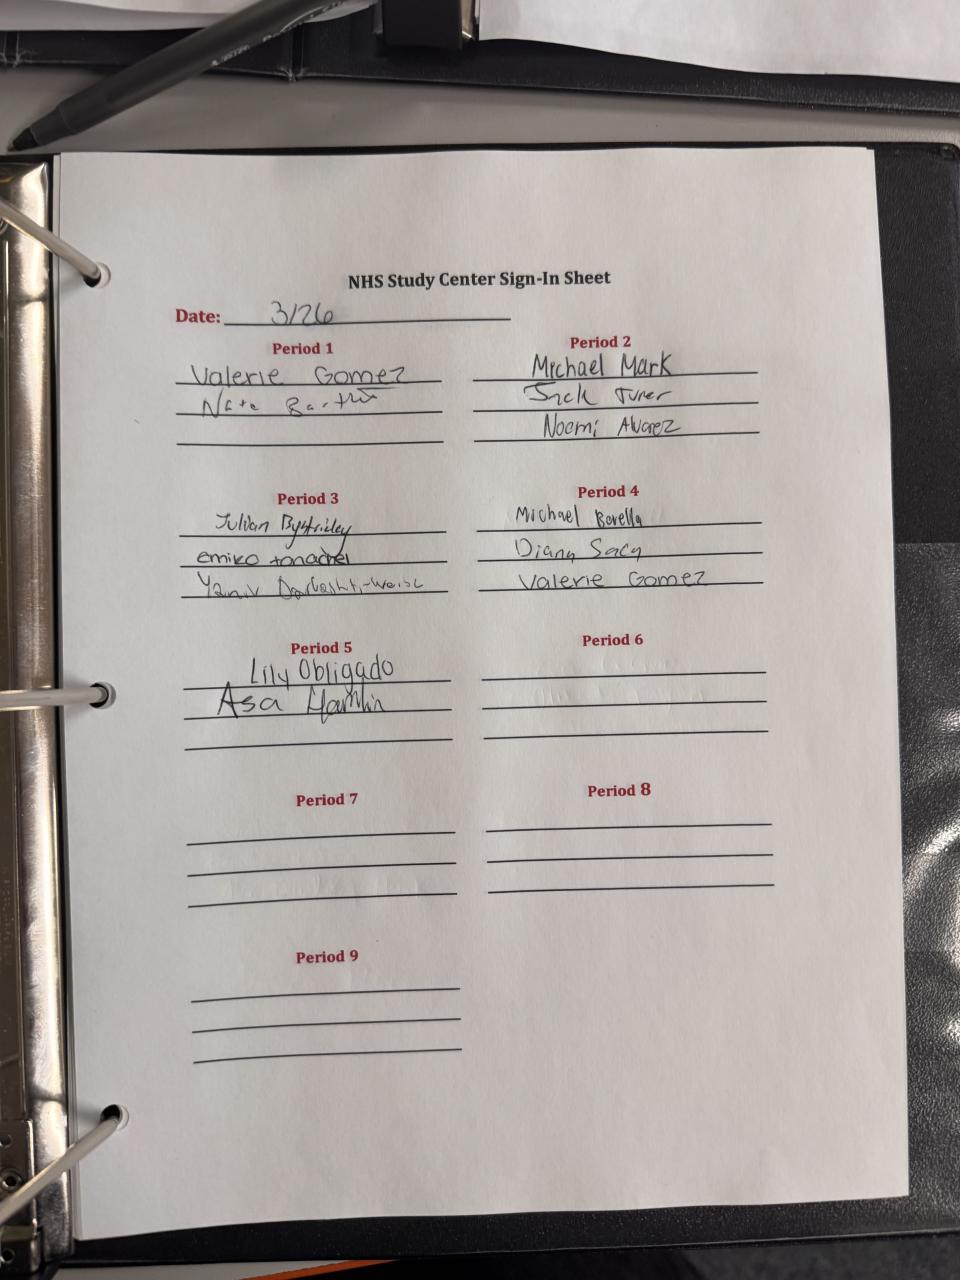 NHS Study Center Sign-In Sheet
Date: 3/26
Period 1
Valerie Gomez
Nate
Period 2
Michael Mark
Jack
Noemi Alvarez
Period 3
Julian
emiko
Yaniv
Period 4
Michael Borella
Diana
Valerie Gomez
Period 5
Lily Obligado
Asa Hamlin
Period 6
Period 7
Period 8
Period 9